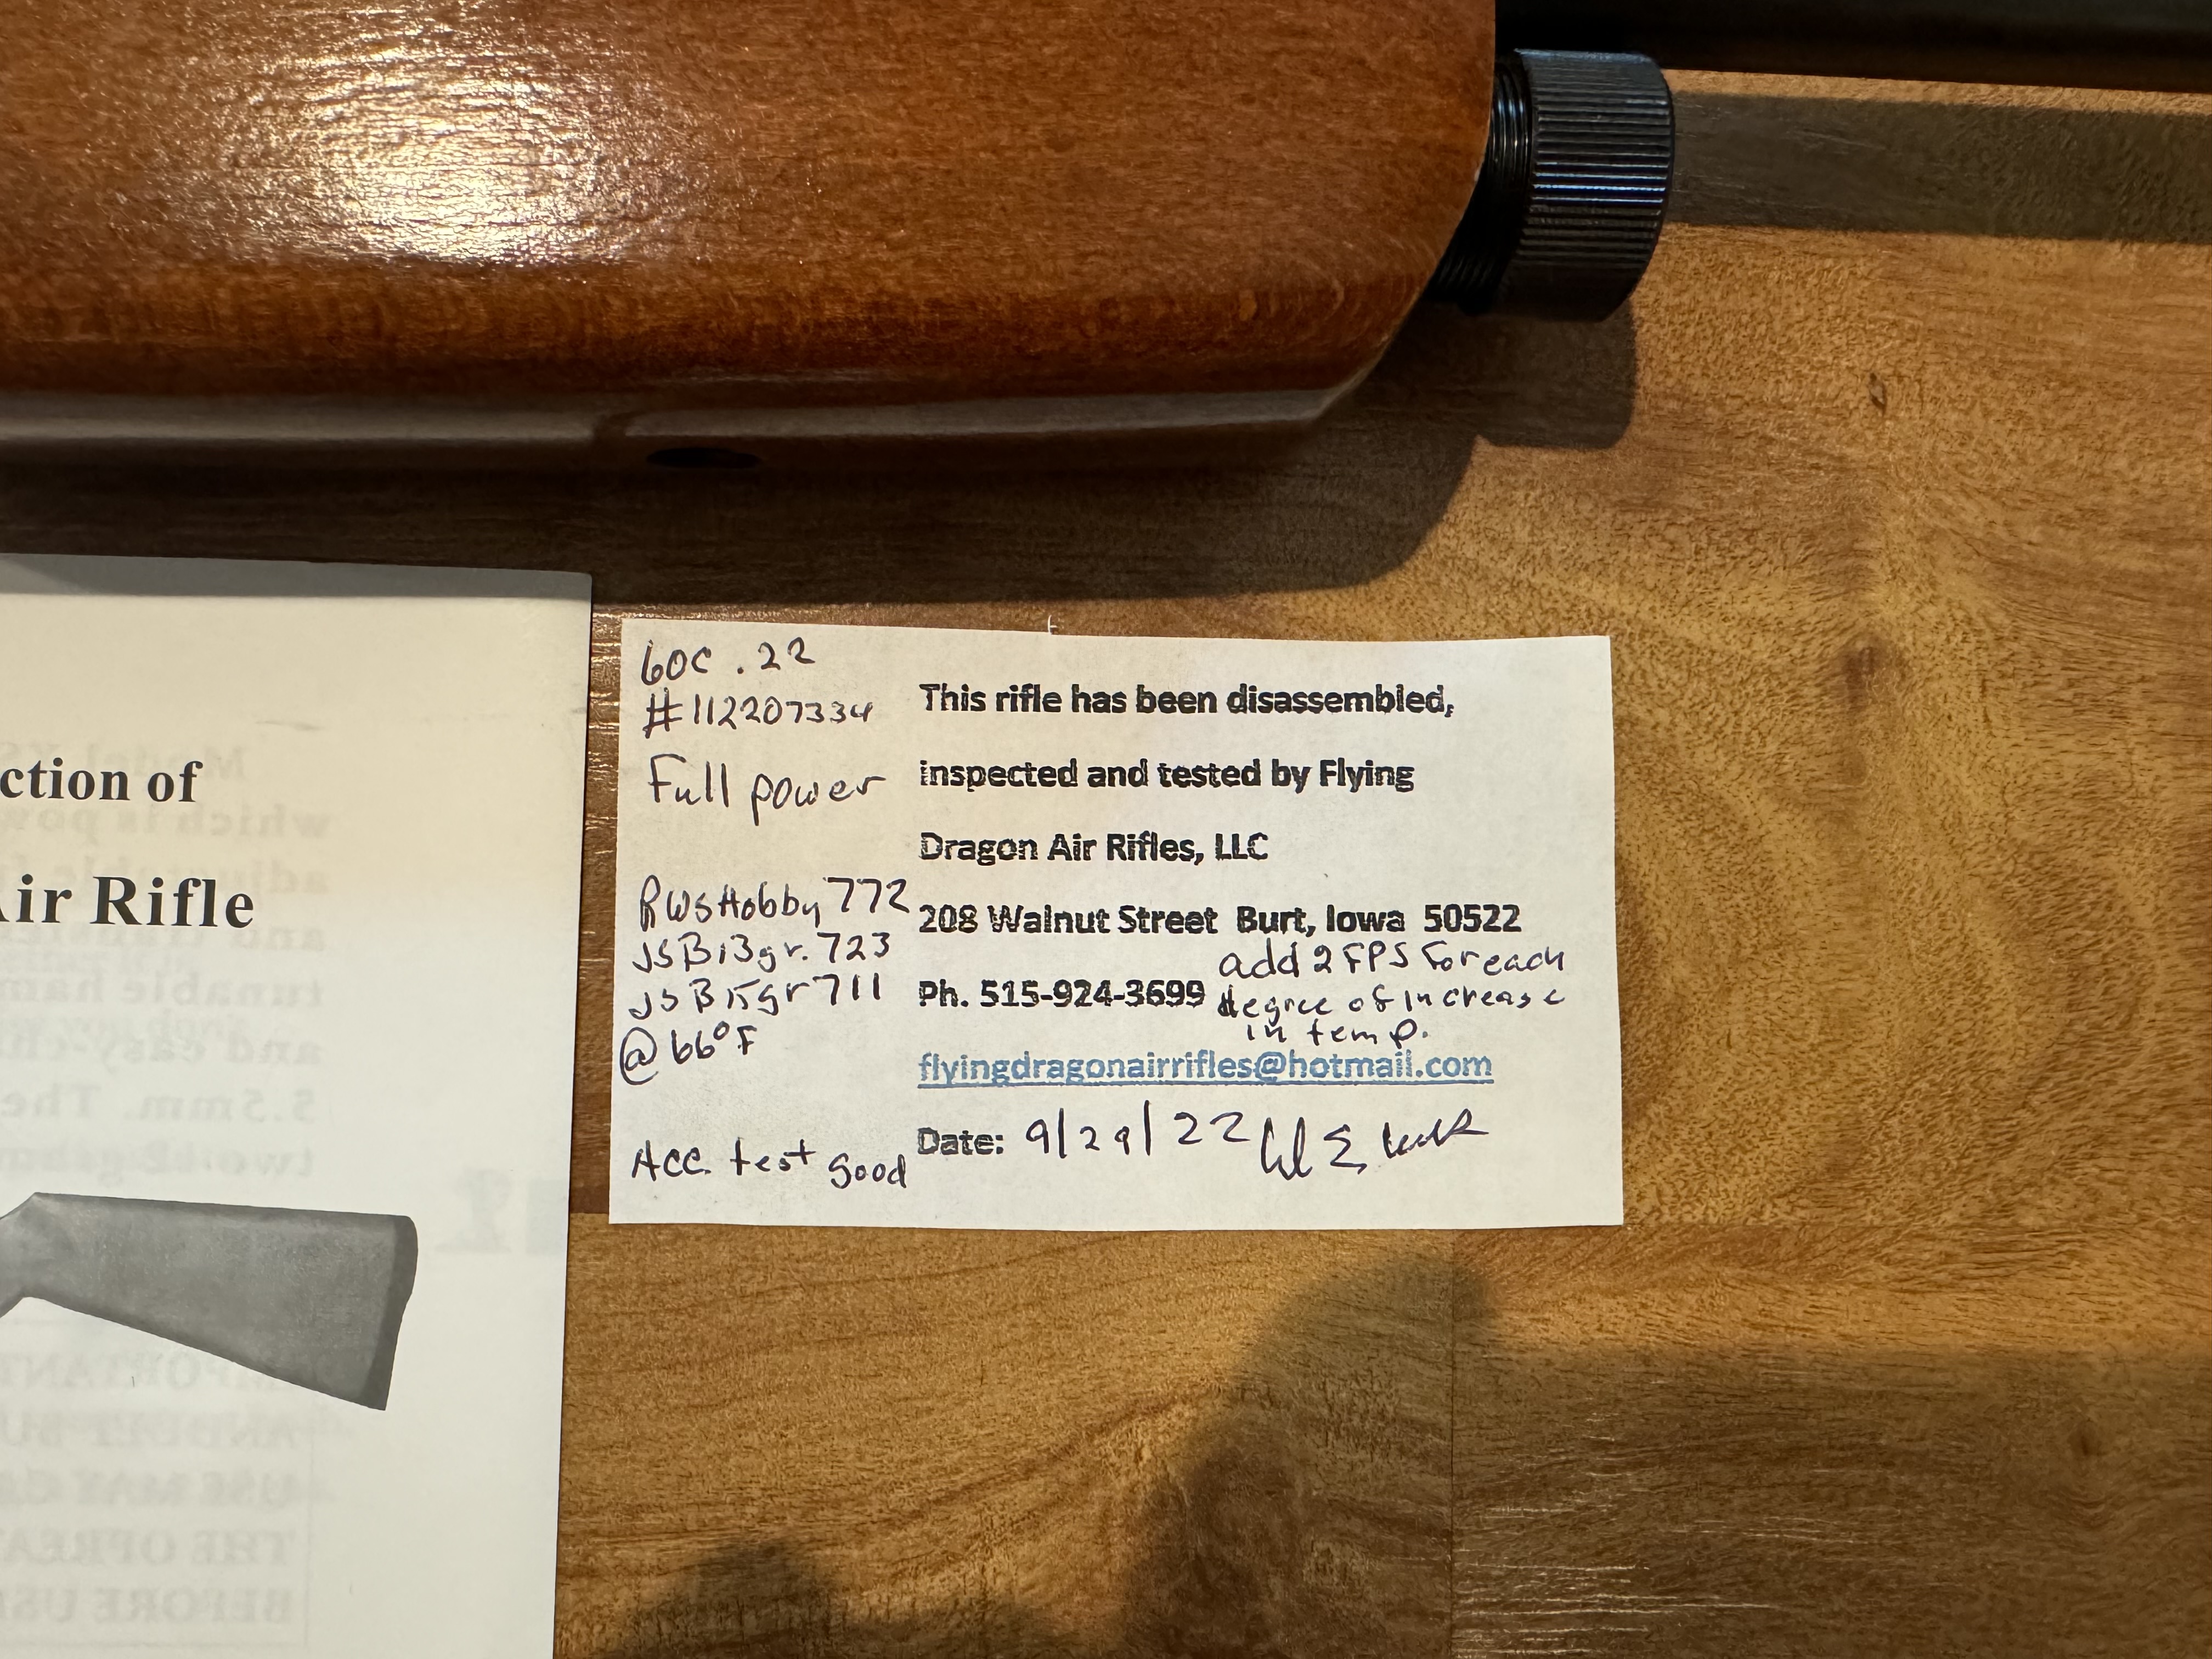 60C .22
#112207334
Full power
RWS Hobby 772
JSB 13gr. 723
JSB 15gr 711
@ 66°F
Acc. test good
This rifle has been disassembled,
inspected and tested by Flying
Dragon Air Rifles, LLC
208 Walnut Street Burt, Iowa 50522
add 2 FPS for each
Ph. 515-924-3699 degree of increase
in temp.
flyingdragonairrifles@hotmail.com
Date: 9/29/22
ction of
Air Rifle